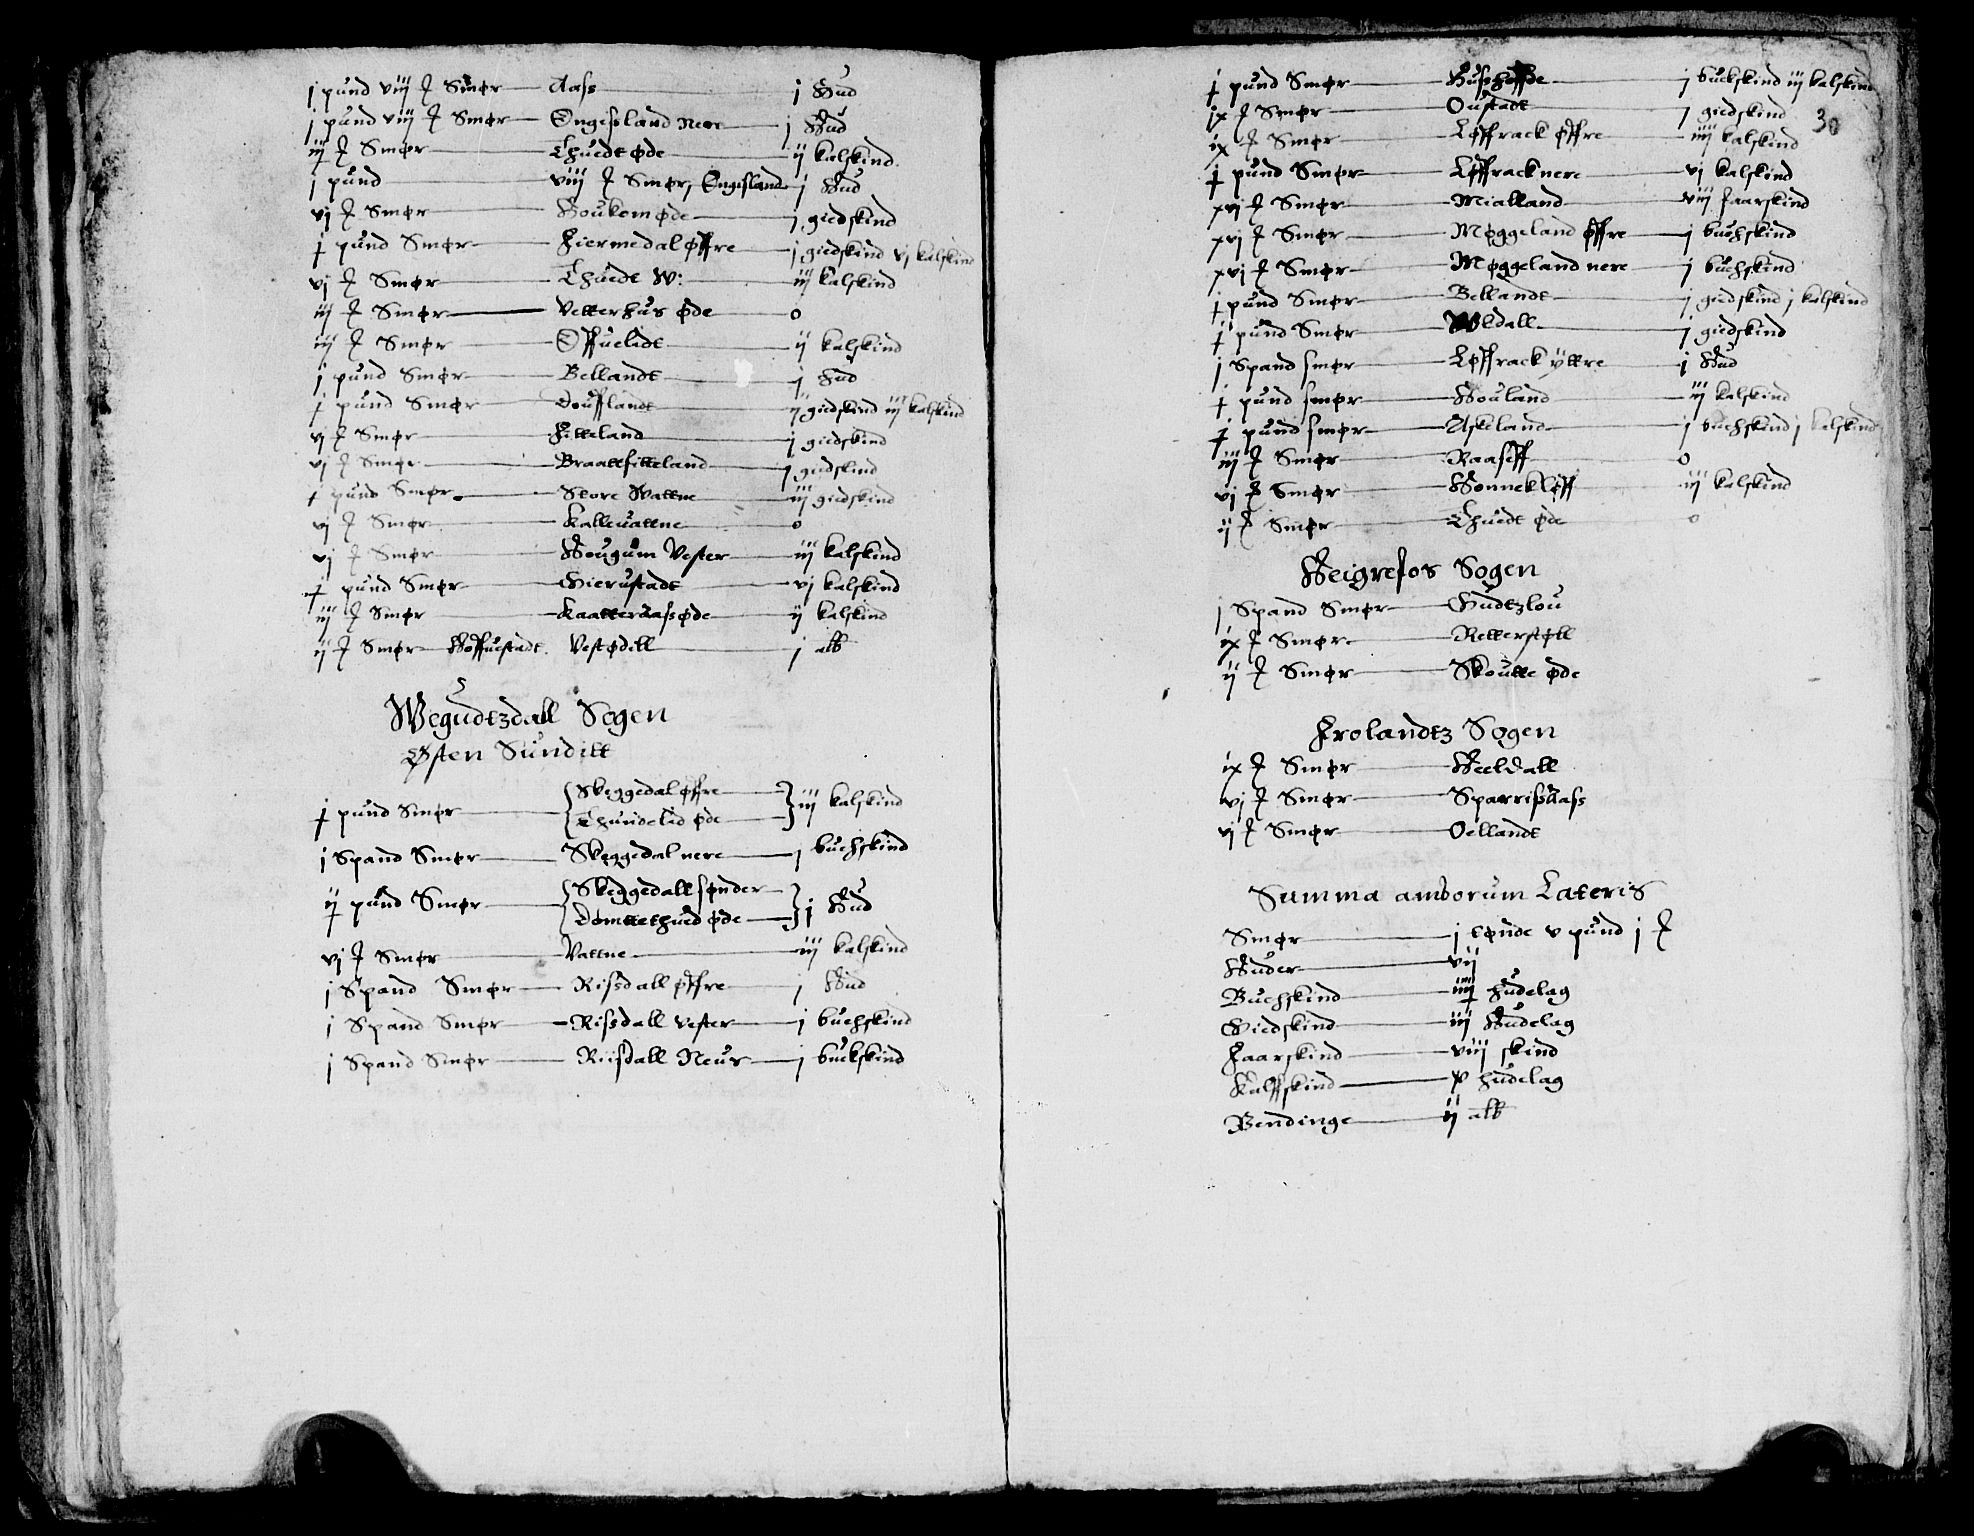 j pund viij ℔ Smør Aass j Hud
j pund viij ℔ Smør Engissland Nere j Hud
iij ℔ Smør Thuedt øde ij kalskind
j pund viij ℔ Smør, Engisland j Hud
vj ℔ Smør Houkom øde j giedskind
ɉ pund Smør Hiermedal øffre j giedskind vj kalskind
vj ℔ Smør Thuedt W: iij kalskind
iij ℔ Smør Vetterhus øde o
iij ℔ Smør Offuelidt ij kalskind
j pund Smør Bellandt j hud
ɉ pund Smør Doufflandt ij giedskind iij kalskind
vj ℔ Smør Fitteland j giedskind
vj ℔ Smør Braattfitteland j giedskind
ɉ pund Smør Store Wattne iij giedskind
vj ℔ Smør Kalleuattne o
vj ℔ Smør Hougum Vester iij kalskind
ɉ pund Smør Gierustadt vj kalskind
iij ℔ Smør Kaatteraas øde ij kalskind
ij ℔ Smør Hoffuestadt Vestødell j alb
Wegudtzdall Sogen
Østen Sunditt
ɉ pund Smør Skeggedal øffre Thundelid øde iij kalskind
j Spand Smør Skeggedal nere j buchskind
ij pund Smør Skeggedall sønder Domttethued øde j Hud
vj ℔ Smør Vattne iij kalskind
j Spand Smør Rissdall øffre j Hud
j Spand Smør Rissdall vester j buchskind
j Spand Smør Riisdall Neur j buckskind
30
ɉ pund Smør j buckskind iij kalskind
ix ℔ Smør Oustadt j giedskind
ix ℔ Smør Løffrack øffre iiij kalskind
ɉ pund Smør Løffrack nere vj kalskind
xvj ℔ Smør Mialland viij faarskind
xvj ℔ Smør Møggeland øffre j buchskind
xvj ℔ Smør Møggeland nere j buchskind
j pund Smør Bellandt j giedskind j kalskind
ɉ pund Smør Wldall j giedskind
j Spand smør Løffrack yttre j Hud
ɉ pund smør Houland iij kalskind
ɉ pund smør Askeland j buchskind j kalskind
iij ℔ Smør Raasiff o
vj ℔ Smør Honnekløff iij kalskind
ij ℔ Smør Thuedt øde o
Heigrefos Sogen
j Spand Smør Gudtzlou
ix ℔ Smør Retterstøll
ij ℔ Smør Skoutte øde
Frolandtz Sogen
ix ℔ Smør Heeldall
vj ℔ Smør Sparrissaass
vj ℔ Smør Oellandt
Summa amborum Lateris
Smør j tønde v pund j ℔
Huder vij
Buchskind iiij hudelag
Giedskind iij Hudelag
Faarskind viij skind
Kalffskind x hudelag
Bendinge ij alb